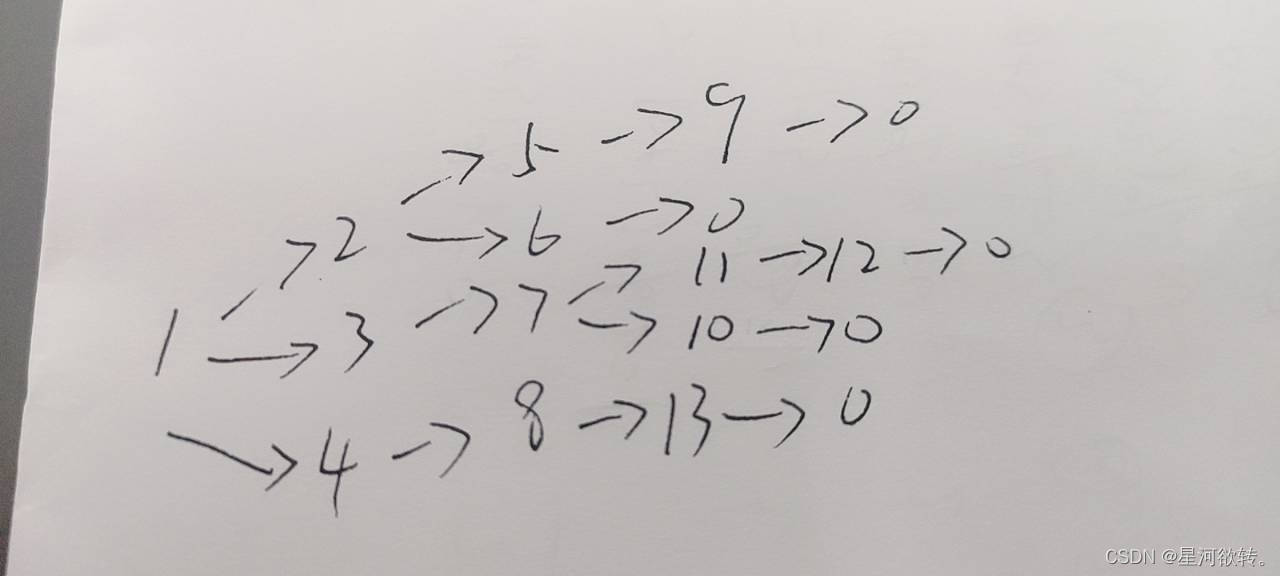 5 → 9 → 0
2 → 6 → 0
11 → 12 → 0
1 → 3 → 7 → 10 → 0
4 → 8 → 13 → 0
CSDN @星河欲转。